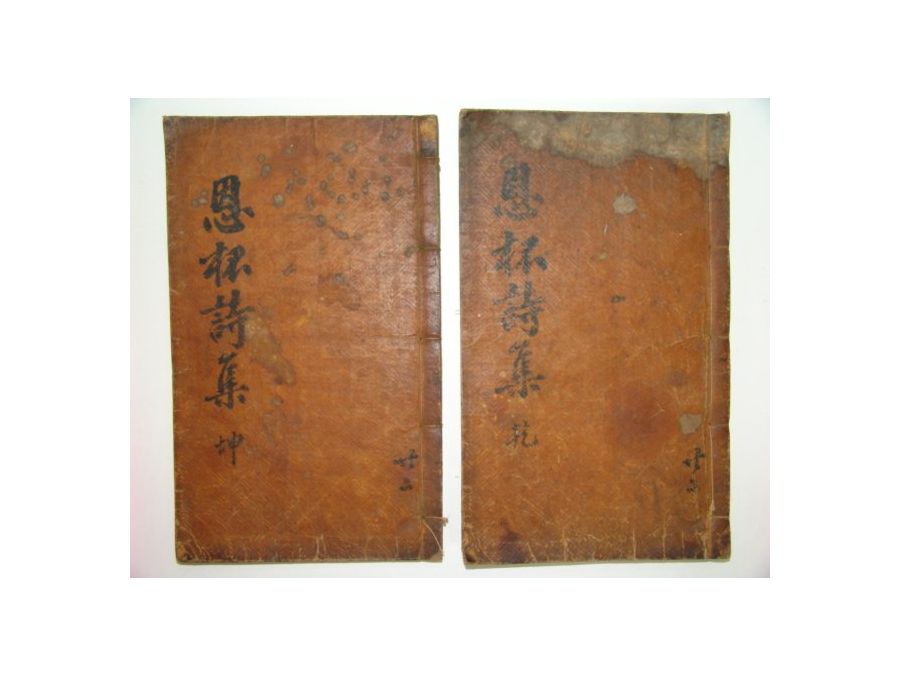 共二
恩杯詩集 乾
共二
恩杯詩集 坤